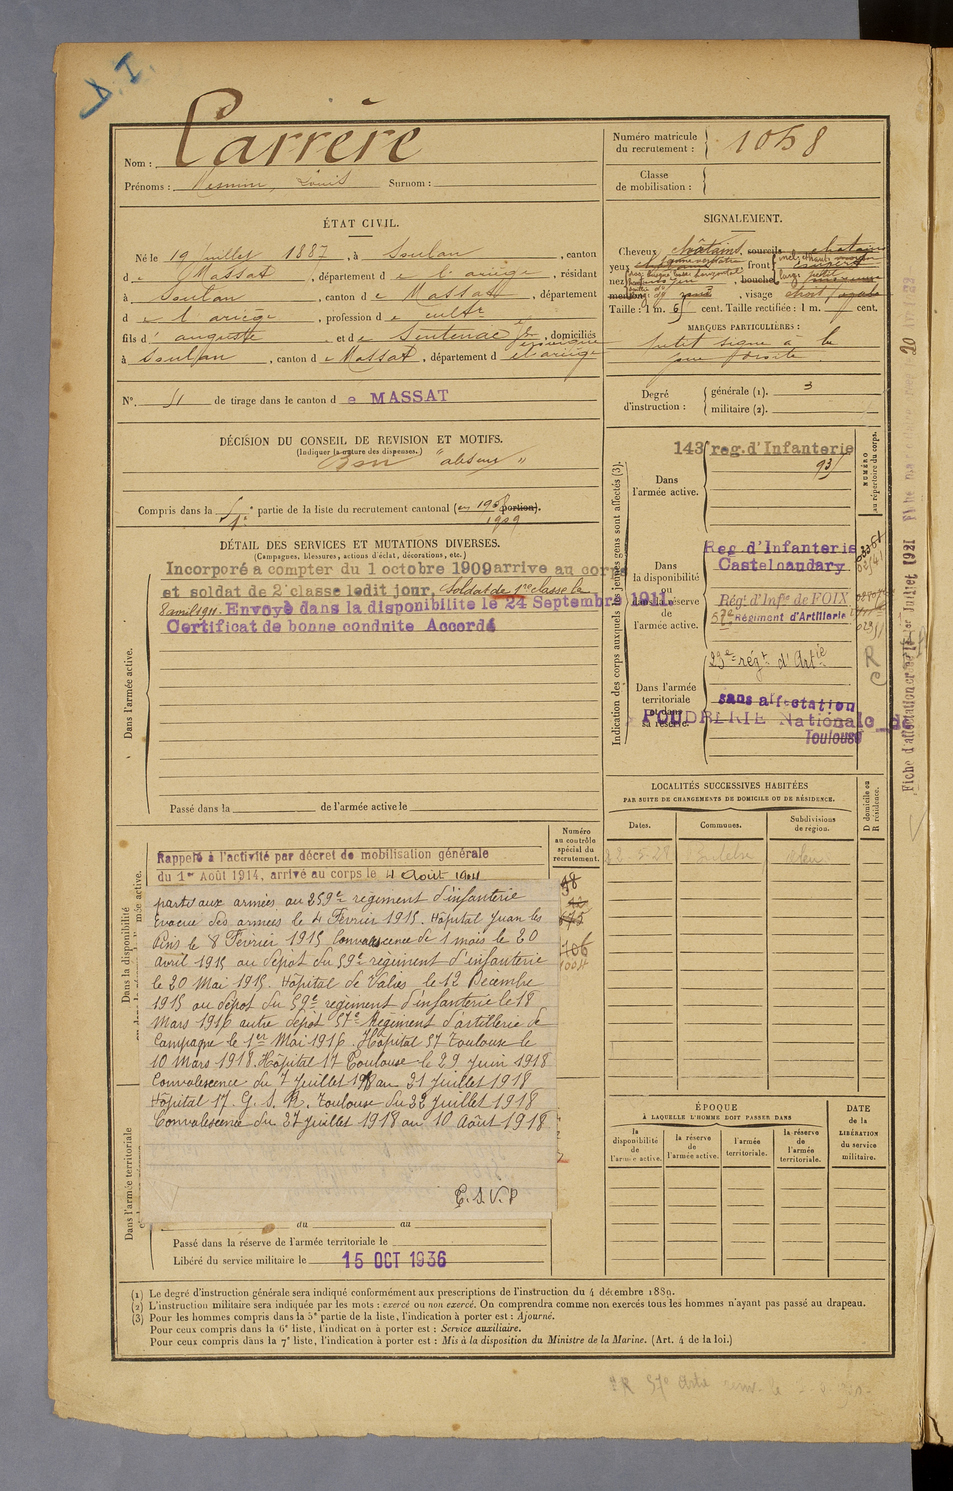 D. I.
Nom : Carrère
Prénoms : Louis Surnom :
Numéro matricule du recrutement : 1058
Classe de mobilisation :
ÉTAT CIVIL.
Né le 19 juillet 1887, à Soulan, canton
de Massat, département de l'ariège, résidant
à Soulan, canton de Massat, département
de l'ariège, profession de cultr
fils d'auguste et de Sentenac, domiciliés
à Soulan, canton de Massat, département d l'ariège
N° 51 de tirage dans le canton de MASSAT
SIGNALEMENT.
Cheveux châtains, sourcils chatains
yeux front
nez, bouche
menton, visage
Taille : 1 m. 65 cent. Taille rectifiée : 1 m. cent.
MARQUES PARTICULIÈRES :
petit signe à la
joue droite
Degré d'instruction : générale (1). 3
militaire (2).
DÉCISION DU CONSEIL DE REVISION ET MOTIFS.
(Indiquer la nature des dispenses.)
Bon "absent"
Compris dans la 1e partie de la liste du recrutement cantonal (en 1908 portion).
1909
DÉTAIL DES SERVICES ET MUTATIONS DIVERSES.
(Campagnes, blessures, actions d'éclat, décorations, etc.)
Dans l'armée active.
Incorporé a compter du 1 octobre 1909 arrive au corps
et soldat de 2e classe ledit jour, Soldat de 1re classe le
8 avril 1911. Envoyé dans la disponibilite le 24 Septembre 1911.
Certificat de bonne conduite Accordé
Passé dans la de l'armée active le
Indication des corps auxquels les jeunes gens sont affectés (3).
NUMÉRO au répertoire du corps.
Dans l'armée active.
143 reg. d'Infanterie
93
Dans la disponibilité ou dans la réserve de l'armée active.
Reg d'Infanterie
Castelnaudary
Régt d'Infie de FOIX
57e Régiment d'Artillerie
Dans l'armée territoriale et dans sa réserve.
23e régt d'Artie
sans affectation
POUDRERIE Nationale de
Toulouse
R
C
LOCALITÉS SUCCESSIVES HABITÉES
PAR SUITE DE CHANGEMENTS DE DOMICILE OU DE RÉSIDENCE.
Dates. Communes. Subdivisions de région. D domicile ou R résidence.
Numéro au contrôle spécial du recrutement.
Dans la disponibilité
Rappelé à l'activité par décret de mobilisation générale
du 1er Août 1914, arrivé au corps le 4 Août 1914
parti aux armées au 259e régiment d'infanterie
Evacué des armées le 4 Février 1915. Hôpital Juan les
Pins le 8 Février 1915 Convalescence de 1 mois le 20
avril 1915 au dépôt du 59e régiment d'infanterie
le 20 Mai 1915. Hôpital de Valies le 12 Décembre
1915 au dépôt du 59e régiment d'infanterie le 18
Mars 1916 autre dépôt 57e Régiment d'artillerie de
Campagne le 1er Mai 1916. Hôpital 57 Toulouse le
10 Mars 1918. Hôpital 17 Toulouse le 29 Juin 1918
Convalescence du 7 Juillet 1918 au 21 Juillet 1918
Hôpital 17. G. S. R. Toulouse du 22 Juillet 1918
Convalescence du 27 Juillet 1918 au 10 Août 1918
T. S. V. P
Dans l'armée territoriale
du au
Passé dans la réserve de l'armée territoriale le
Libéré du service militaire le 15 OCT 1936
ÉPOQUE
À LAQUELLE L'HOMME DOIT PASSER DANS
la disponibilité de l'armée active. la réserve de l'armée active. l'armée territoriale. la réserve de l'armée territoriale.
DATE de la LIBÉRATION du service militaire.
(1) Le degré d'instruction générale sera indiqué conformément aux prescriptions de l'instruction du 4 décembre 1889.
(2) L'instruction militaire sera indiquée par les mots : exercé ou non exercé. On comprendra comme non exercés tous les hommes n'ayant pas passé au drapeau.
(3) Pour les hommes compris dans la 5e partie de la liste, l'indication à porter est : Ajourné.
Pour ceux compris dans la 6e liste, l'indication à porter est : Service auxiliaire.
Pour ceux compris dans la 7e liste, l'indication à porter est : Mis à la disposition du Ministre de la Marine. (Art. 4 de la loi.)